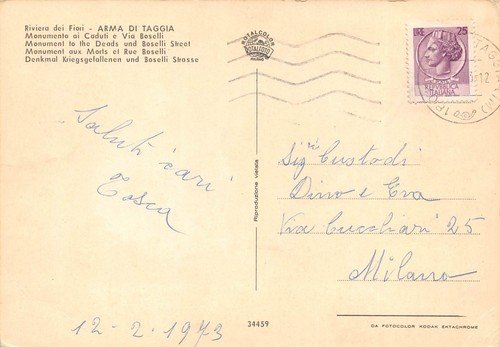 Riviera dei Fiori - ARMA DI TAGGIA
Monumento ai Caduti e Via Boselli
Monument to the Deads and Boselli Street
Monument aux Morts et Rue Boselli
Denkmal Kriegsgefallenen und Boselli Strasse
ROTALCOLOR
ROTALFOTO
MILANO
LIRE 25
REPVBBLICA
ITALIANA
TAGG
12
Saluti cari
Tosca
12-2-1973
Riproduzione vietata
34459
Sig.ri Custodi
Dino e Eva
Via Cucchiari 25
Milano
DA FOTOCOLOR KODAK EKTACHROME